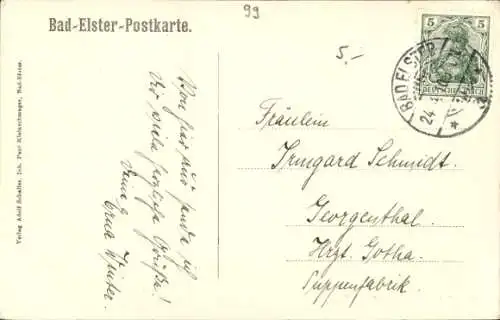 99
Bad-Elster-Postkarte.
5.-
5 5
DEUTSCHES REICH
BAD ELSTER
24
Verlag Adolf Schulze, Inh. Paul Kleinschwager, Bad-Elster.
Von hier aus sende ich
Dir viele herzliche Grüße!
Deine
Erna Winter.
Fräulein
Irmgard Schmidt.
Georgenthal.
Hrzt. Gotha.
Puppenfabrik.